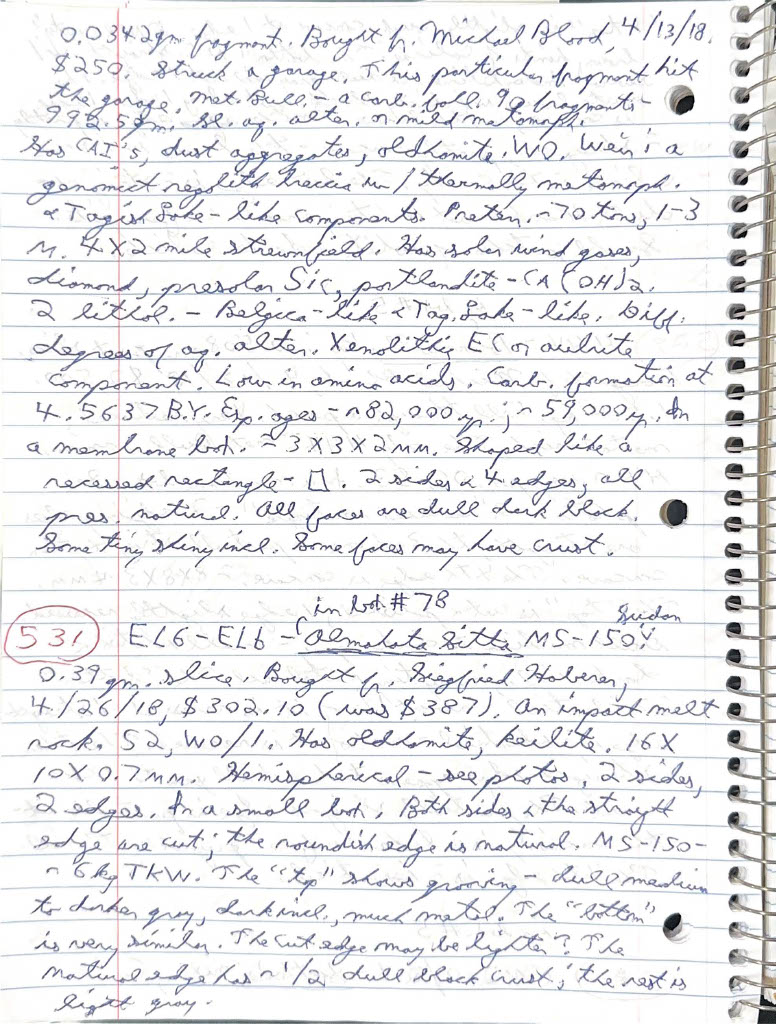 0.0342gm fragment. Bought fr. Michael Blood, 4/13/18,
$250. Struck a garage. This particular fragment hit
the garage. Met. Bull. - a carb. boll. 99 fragments -
992.5gm. Sl. aq. alter. or mild metamorph.
Has CAI's, dust aggregates, oldhamite. W0. a
genomict regolith breccia w/ thermally metamorph.
& Tagish Lake-like components. Preatm. ~70 tons, 1-3
M. 4X2 mile strewnfield. Has solar wind gases,
diamond, presolar SiC, portlandite - CA(OH)2.
2 lithol. - Belgica-like & Tag. Lake-like. Diff.
degrees of aq. alter. Xenolithic EC or aubrite
component. Low in amino acids. Carb. formation at
4.5637 B.Y. Exp. ages - ~82,000 yr.; ~59,000 yr. In
a membrane box. ≈ 3X3X2MM. Shaped like a
recessed rectangle - . 2 sides & 4 edges, all
pres. natural. All faces are dull dark black.
Some tiny shiny incl. Some faces may have crust.
in bot. #78
531 EL6-EL6 - Almahata Sitta MS-150; Sudan
0.39 gm. slice. Bought fr. Siegfried Haberer,
4/26/18, $302.10 (was $387). An impact melt
rock. S2, W0/1. Has oldhamite, keilite. 16X
10X0.7MM. Hemispherical - see photos, 2 sides,
2 edges. In a small box. Both sides & the straight
edge are cut; the roundish edge is natural. MS-150 -
~6kg TKW. The "top" shows grooving - dull medium
to darker gray, dark incl., much metal. The "bottom"
is very similar. The cut edge may be lighter? The
natural edge has ~1/2 dull black crust; the rest is
light gray.